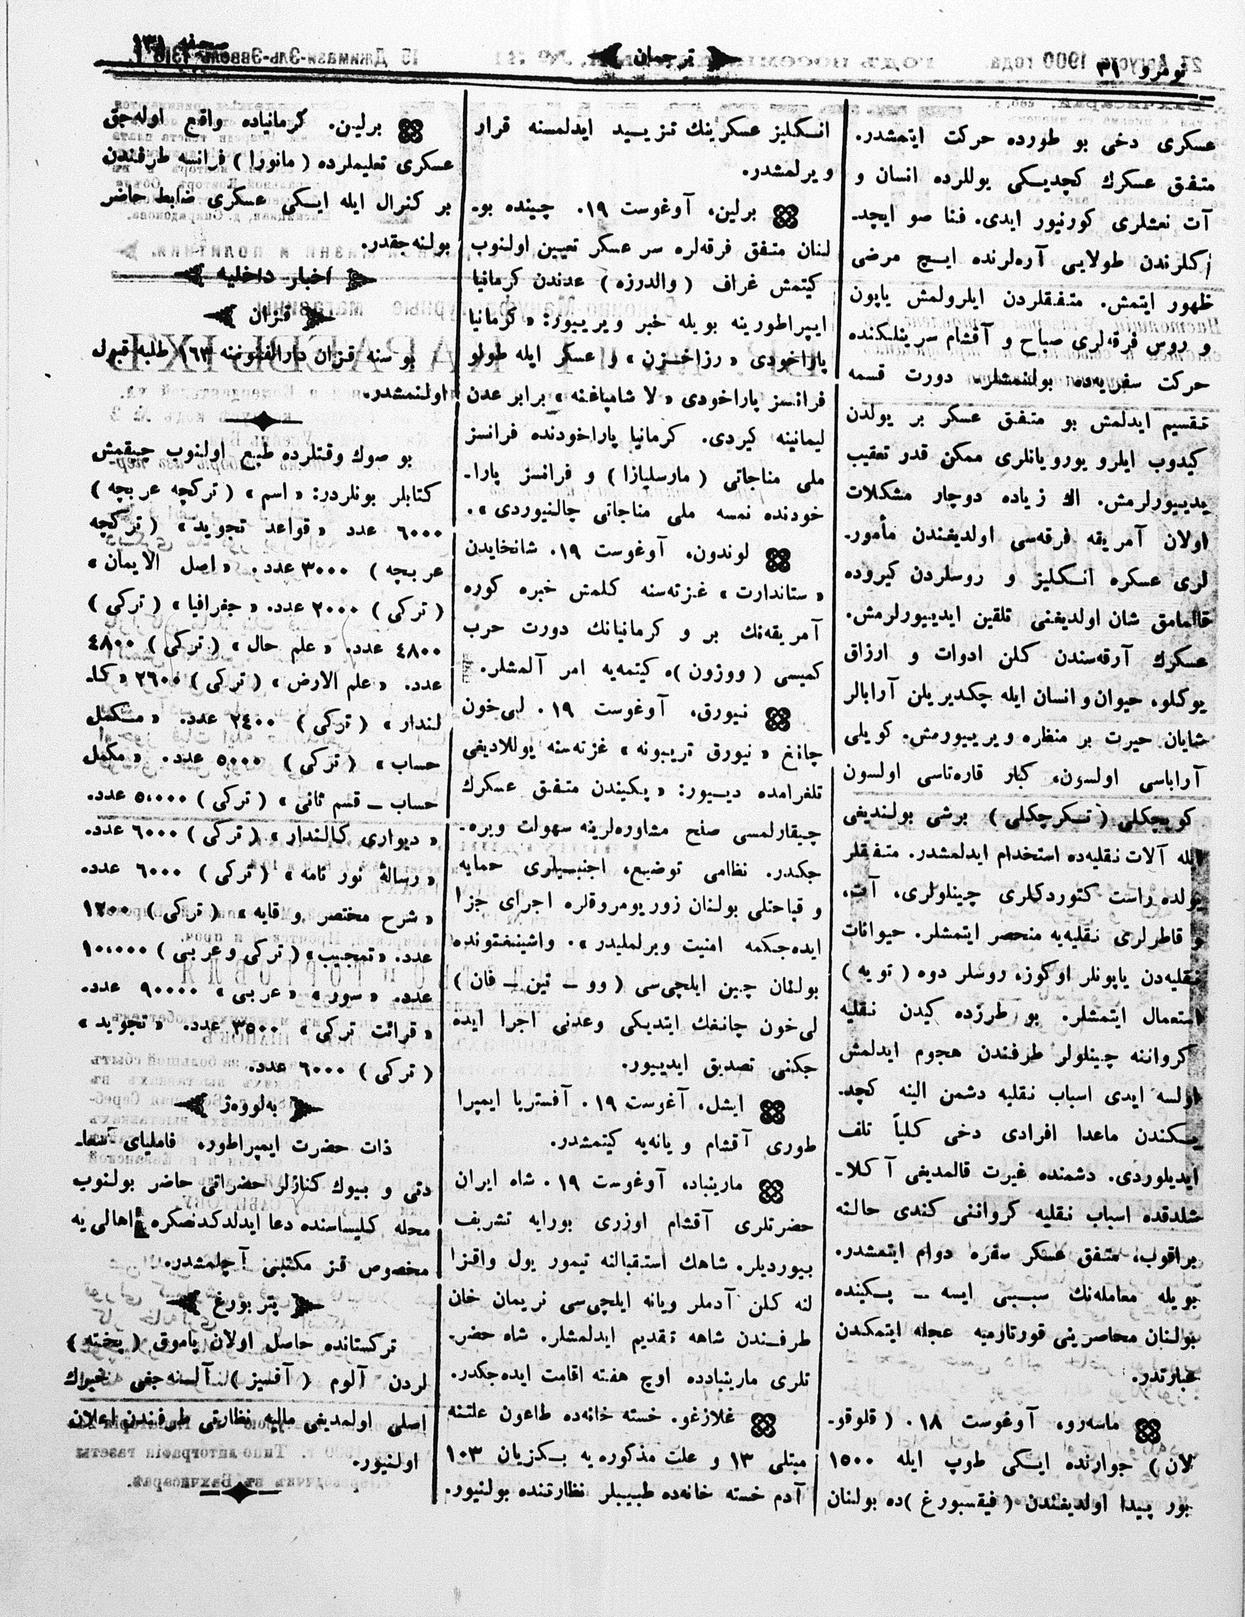 نومرو ٣١
ترجمان
صحفه ١٣١
عسكری دخی بو طورده حركت ایتمشدر.
متفق عسكرك كچدیكی یوللرده انسان و
آت نعشلری كورنیور ایدی. فنا صو ایچد-
كلرندن طولایی آره‌لرنده ایچ مرضی
ظهور ایتمش. متفقلردن ایلرولمش یاپون
و روس فرقه‌لری صباح و آقشام سرینلكنده
حركت سفریه‌ده بولنمشلر. دورت قسمه
تقسیم ایدلمش بو متفق عسكر بر یولدن
كیدوب ایلرو یورویانلری ممكن قدر تعقیب
یدییورلرمش. اك زیاده دوچار مشكلات
اولان آمریقه فرقه‌سی اولدیغندن مأمور-
لری عسكره انسكلیز و روسلردن كیروده
قالمامق شان اولدیغنی تلقین ایدییورلرمش.
عسكرك آرقه‌سندن كلن ادوات و ارزاق
یوكلو، حیوان و انسان ایله چكدیریلن آرابالر
شایان حیرت بر منظره ویرییورمش. كویلی
آراباسی اولسون، كبار قاره‌تاسی اولسون
كوپچكلی (تكرچكلی) برشی بولندیغی
ایله آلات نقلیه‌ده استخدام ایدلمشدر. متفقلر
یولده راست كتوردكلری چینلولری، آت،
و قاطرلری نقلیه‌یه منحصر ایتمشلر. حیوانات
نقلیه‌دن یاپونلر اوكوز، روسلر دوه (تویه)
استعمال ایتمشلر. بو طرزده كیدن نقلیه
كرواننه چینلولر طرفندن هجوم ایدلمش
اولسه ایدی اسباب نقلیه دشمن الینه كچد-
یكندن ماعدا افرادی دخی كلیاً تلف
ایدیلوردی. دشمنده غیرت قالمدیغی آكلا-
شلدقده اسباب نقلیه كرواننی كندی حالنه
براقوب، متفق عسكر سفره دوام ایتمشدر.
بویله معامله‌نك سببی ایسه – پكینده
بولنان محاصرینی قورتارمیه عجله ایتمكدن
عبارتدر.
ماسه‌رو، آوغوست ١٨. (قلوقو-
لان) جوارنده ایكی طوپ ایله ١٥٠٠
بور پیدا اولدیغندن (فیقسبورغ)ده بولنان
انسكلیز عسكرینك تزیید ایدلمسنه قرار
ویرلمشدر.
برلین، آوغوست ١٩. چینده بو-
لنان متفق فرقه‌لره سر عسكر تعیین اولنوب
كیتمش غراف (والدرزه) عدندن كرمانیا
ایپراطورینه بویله خبر ویرییور: «كرمانیا
پاراخودی «رزاخزن» و عسكر ایله طولو
فرانسز پاراخودی «لا شامپاغنه» برابر عدن
لیمانینه كیردی. كرمانیا پاراخودنده فرانسز
ملی مناجاتی (مارسلیازا) و فرانسز پارا-
خودنده نمسه ملی مناجاتی چالنیوردی».
لوندون، آوغوست ١٩. شانخایدن
«ستاندارت» غزته‌سنه كلمش خبره كوره
آمریقه‌نك بر و كرمانیانك دورت حرب
كمیسی (ووزون)ه كیتمه‌یه امر آلمشلر.
نیورق، آوغوست ١٩. لی‌خون
چانغ «نیورق تریبونه» غزته‌سنه یوللادیغی
تلغرامده دییور: «پكیندن متفق عسكرك
چیقارلمسی صلح مشاوره‌لرینه سهولت ویره-
جكدر. نظامی توضیع، اجنبیلری حمایه
و قباحتلی بولنان زوریومروقلره اجرای جزا
ایده‌جكمه امنیت ویرلملیدر». واشینغتونده
بولنان چین ایلچی‌سی (وو – تین – فان)
لی‌خون چانغك ایتدیكی وعدنی اجرا ایده
جكنی تصدیق ایدییور.
ایشل، آغوست ١٩. آفستریا ایمپرا
طوری آقشام ویانه‌یه كیتمشدر.
مارینباد، آوغوست ١٩. شاه ایران
حضرتلری آقشام اوزری بورایه تشریف
بیوردیلر. شاهك استقبالنه تیمور یول واقزا
لنه كلن آدملر ویانه ایلچی‌سی نریمان خان
طرفندن شاهه تقدیم ایدلمشلر. شاه حضر-
تلری مارینبادده اوچ هفته اقامت ایده‌جكدر.
غلازغو. خسته خانه‌ده طاعون علتنه
مبتلی ١٣ و علت مذكوره یه بكزیان ١٠٣
آدم خسته خانه‌ده طبیبلر نظارتنده بولنیور.
برلین. كرمانیاده واقع اوله‌جق
عسكری تعلیملرده (مانورا) فرانسه طرفندن
بر كنرال ایله ایكی عسكری ضابط حاضر
بولنه‌جقدر.
اخبار داخلیه
قزان
بو سنه قزان دارالفنوننه ١٦٣ طلبه قبول
اولنمشدر.
بو صوك وقتلرده طبع اولنوب چیقمش
كتابلر بونلردر: «اسم» (تركچه عربچه)
٦٠٠٠ عدد «قواعد تجوید» (تركچه
عربچه) ٣٠٠٠ عدد. «اصل الایمان»
(تركی) ٢٠٠٠ عدد. «جغرافیا» (تركی)
٤٨٠٠ عدد. «علم حال» (تركی) ٤٨٠٠
عدد. «علم الارض» (تركی) ٢٦٠٠ «كا-
لندار» (تركی) ٢٤٠٠ عدد. «مكمل
حساب» (تركی) ٥٠٠٠ عدد. «مكمل
حساب – قسم ثانی» (تركی) ٥٠٠٠٠ عدد.
«دیواری كالندار» (تركی) ٦٠٠٠ عدد.
«رسالهٔ نور نامه» (تركی) ٦٠٠٠ عدد.
«شرح مختصر وقایه» (تركی) ١٢٠٠
عدد. «تمجیب» (تركی وعربی) ١٠٠٠٠٠
عدد. «سور» «عربی» ٩٠٠٠٠ عدد.
«قرائت تركی» ٣٥٠٠ عدد. «تجوید»
(تركی) ٦٠٠٠ عدد.
به‌لووه‌ژ
ذات حضرت ایمپراطوره، فاملیای
دتی و بیوك كنازلر حضراتی حاضر بولنوب
محله كلیساسنده دعا ایدلدكدنصكره اهالی یه
مخصوص قز مكتبنی آچلمشدر.
پتربورغ
تركستانده حاصل اولان پاموق (پخته)
لردن آلوم (آقسیز) آلنه‌جغی خبرك
اصلی اولمدیغی مالیه نظارتی طرفندن اعلان
اولنیور.